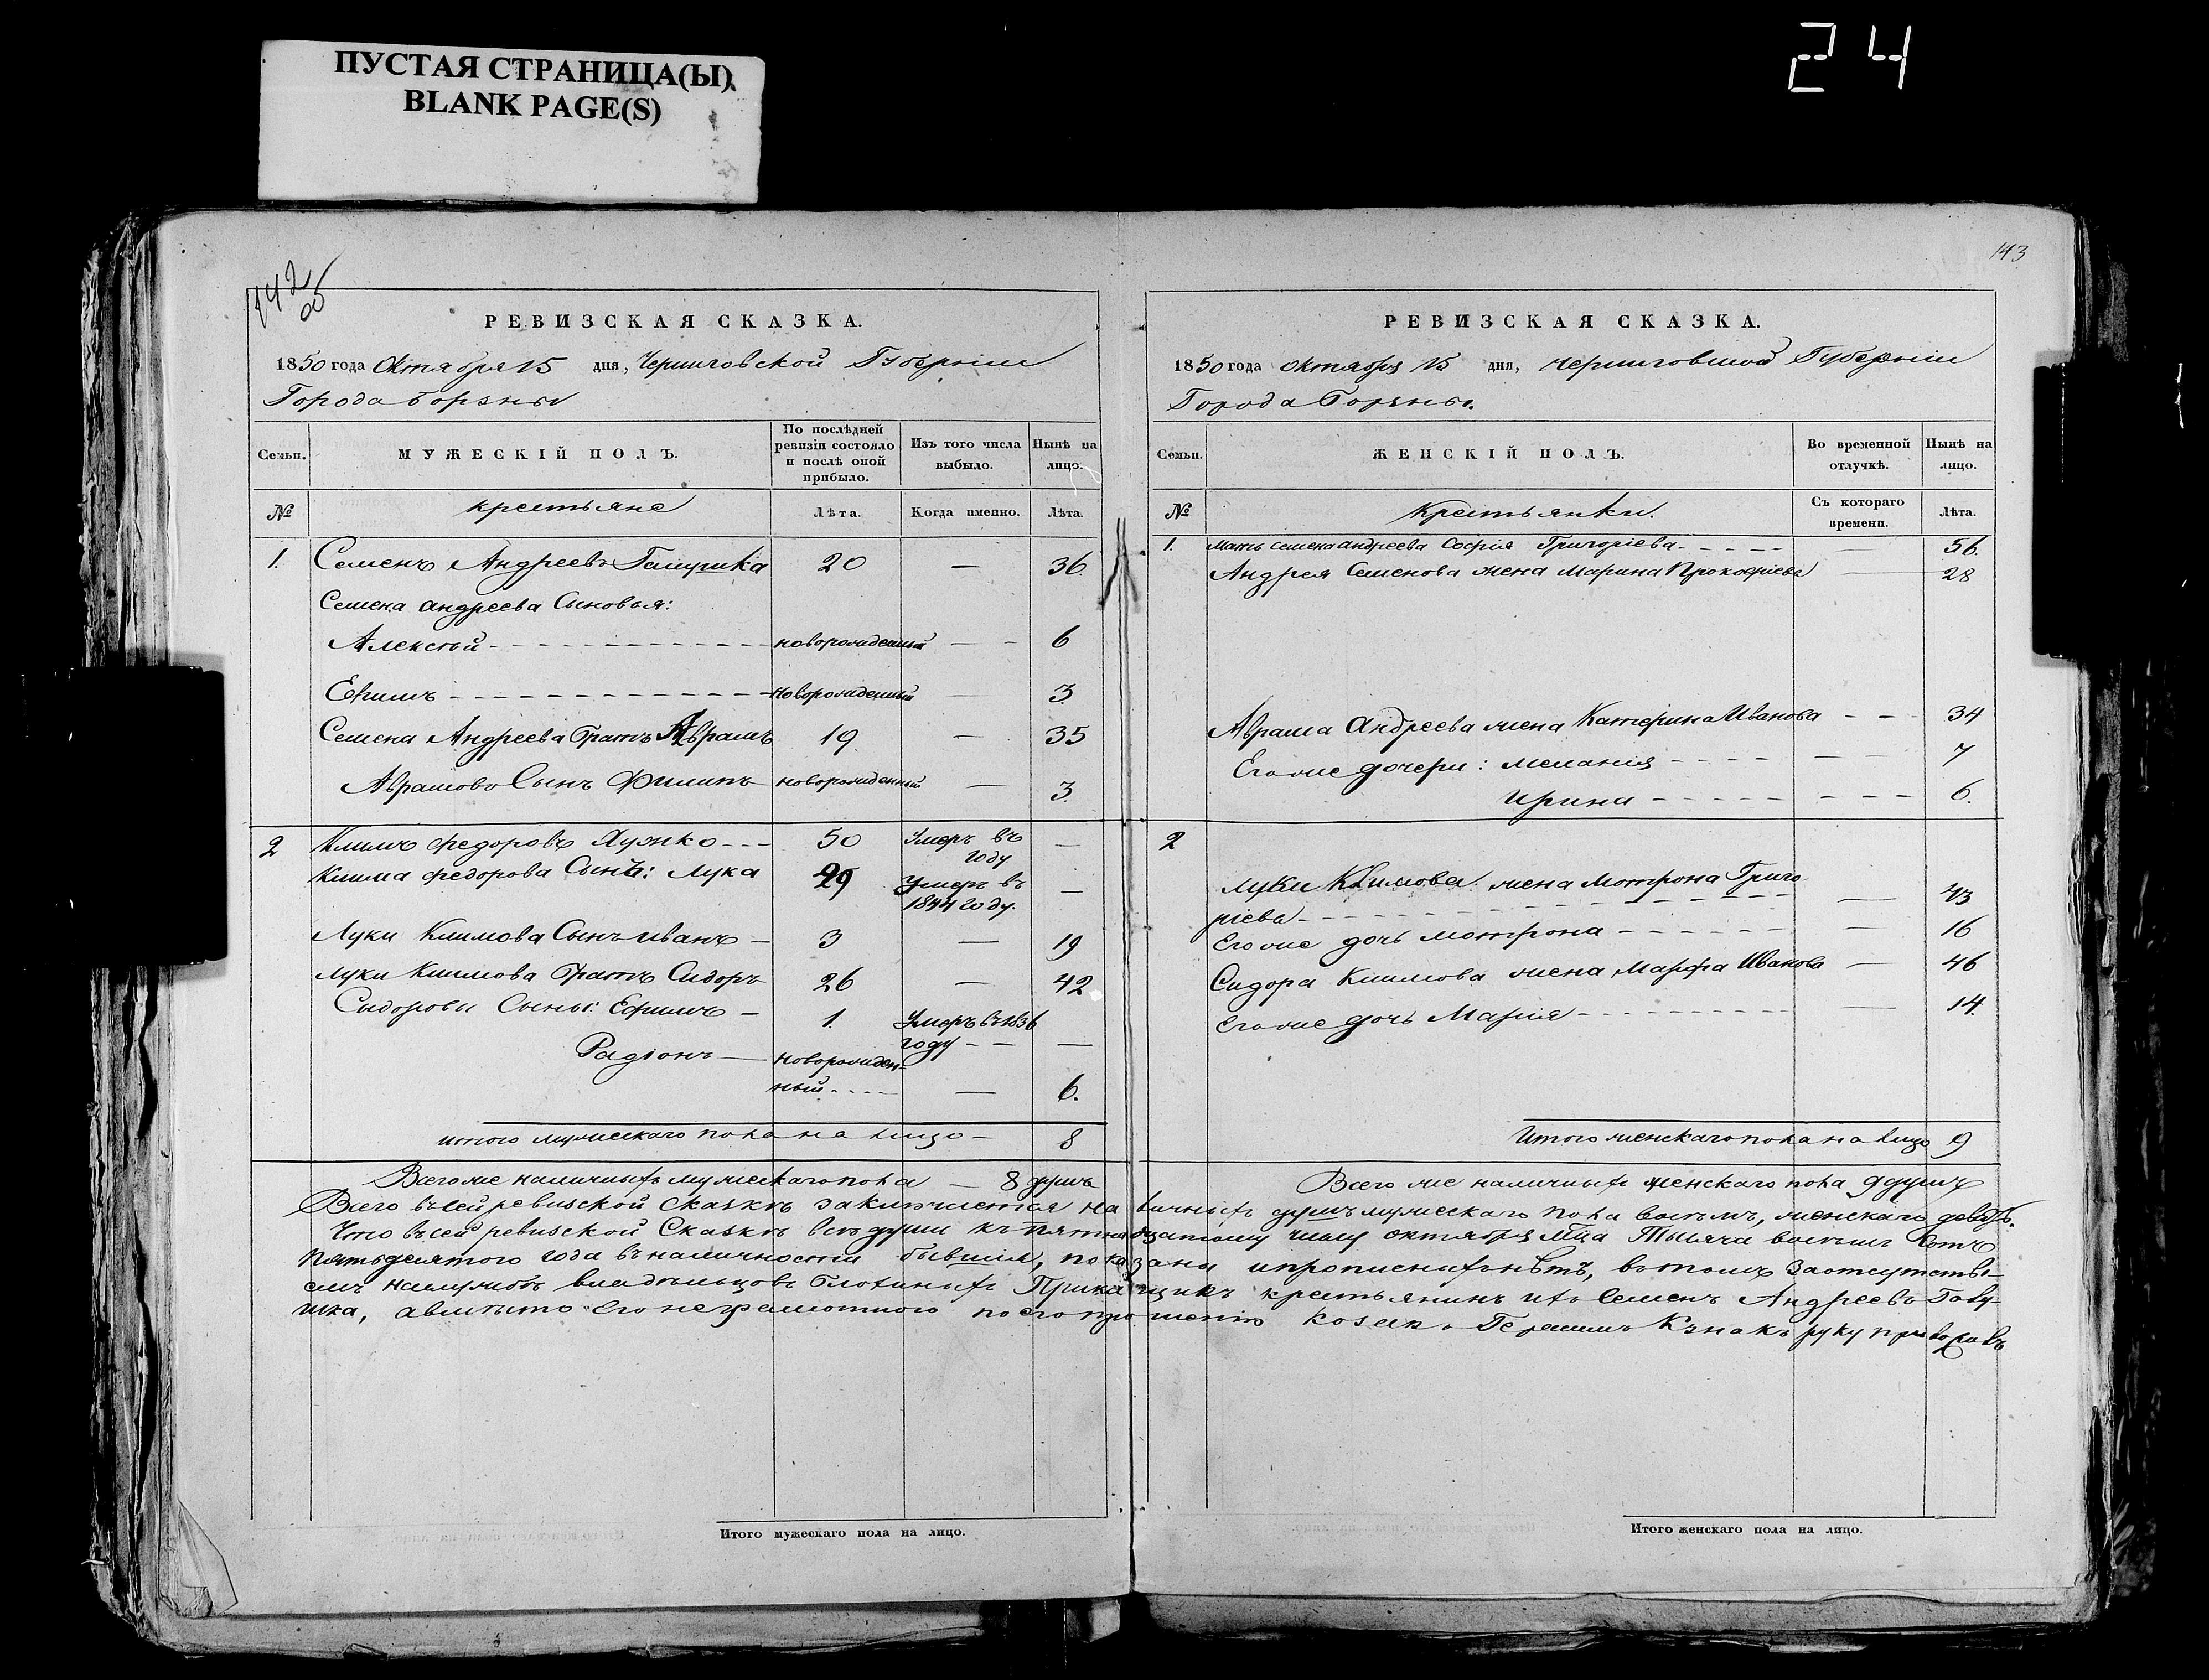 ПУСТАЯ СТРАНИЦА(Ы)
BLANK PAGE(S)
24
142 об
РЕВИЗСКАЯ СКАЗКА.
1850 года Октября 15 дня, Черниговской Губернiи
Города Борзны
Семьи. МУЖЕСКIЙ ПОЛЪ. По послѣдней ревизiи состояло и послѣ оной прибыло. Изъ того числа выбыло. Нынѣ на лицо.
№ крестьяне Лѣта. Когда именно. Лѣта.
1. Семенъ Андреевъ 20 — 36.
Семена андреева Сыновья:
Алексѣй новорожденный — 6
Ефимъ новорожденный — 3
Семена Андреева Братъ Аврамъ 19 — 35
Аврамово Сынъ Филипъ новорожденный — 3.
2 Климъ федоровъ 50 Умеръ въ году —
Клима федорова Сынъ: Лука 29 Умеръ въ 1844 году. —
Луки Климова Сынъ иванъ — 3 — 19
Луки Климова Братъ Сидоръ 26 — 42
Сидоровы Сыны: Ефимъ — 1. Умеръ въ 1836 году — —
Радiонъ — новорожденный — 6.
итого мужескаго пола на лицо — 8
Всего же наличныхъ мужескаго пола — 8 душъ
143
РЕВИЗСКАЯ СКАЗКА.
1850 года октября 15 дня, Черниговской Губернiи
Города Борзны.
Семьи. ЖЕНСКIЙ ПОЛЪ. Во временной отлучкѣ. Нынѣ на лицо.
№ Крестьянки. Съ котораго времени. Лѣта.
1. Мать семена андреева Софiя Григорiева 56.
Андрея Семенова жена Марина Прокофiева — 28
Аврама Андреева жена Катерина Иванова 34
Его же дочери: меланiя 7
Ирина 6.
2
Луки Климова жена Мотрона Григо
рiева — 43
Его же дочь мотрона — 16
Сидора Климова жена Марфа Иванова — 46
Его же дочь Марiя — 14.
Итого женскаго пола на лицо 9
Всего же наличныхъ женскаго пола 9 душъ
Всего въ сей ревизской Сказкѣ заключается наличныхъ душъ мужескаго пола восемь, женскаго девять.
Что въ сей ревизской Сказкѣ всѣ души къ пятнадцатому числу октября мца Тысяча восемь сотъ
пятьдесятого года въ наличности бывшiя, показаны и прописныхъ нѣтъ, въ томъ за отсутствi-
емъ владѣльцовъ Прикащикъ крестьянинъ ихъ Семенъ Андреевъ
шка, а вмѣсто его неграмотного по его прошенiю козакъ Герасимъ руку приложилъ
Итого мужескаго пола на лицо.
Итого женскаго пола на лицо.